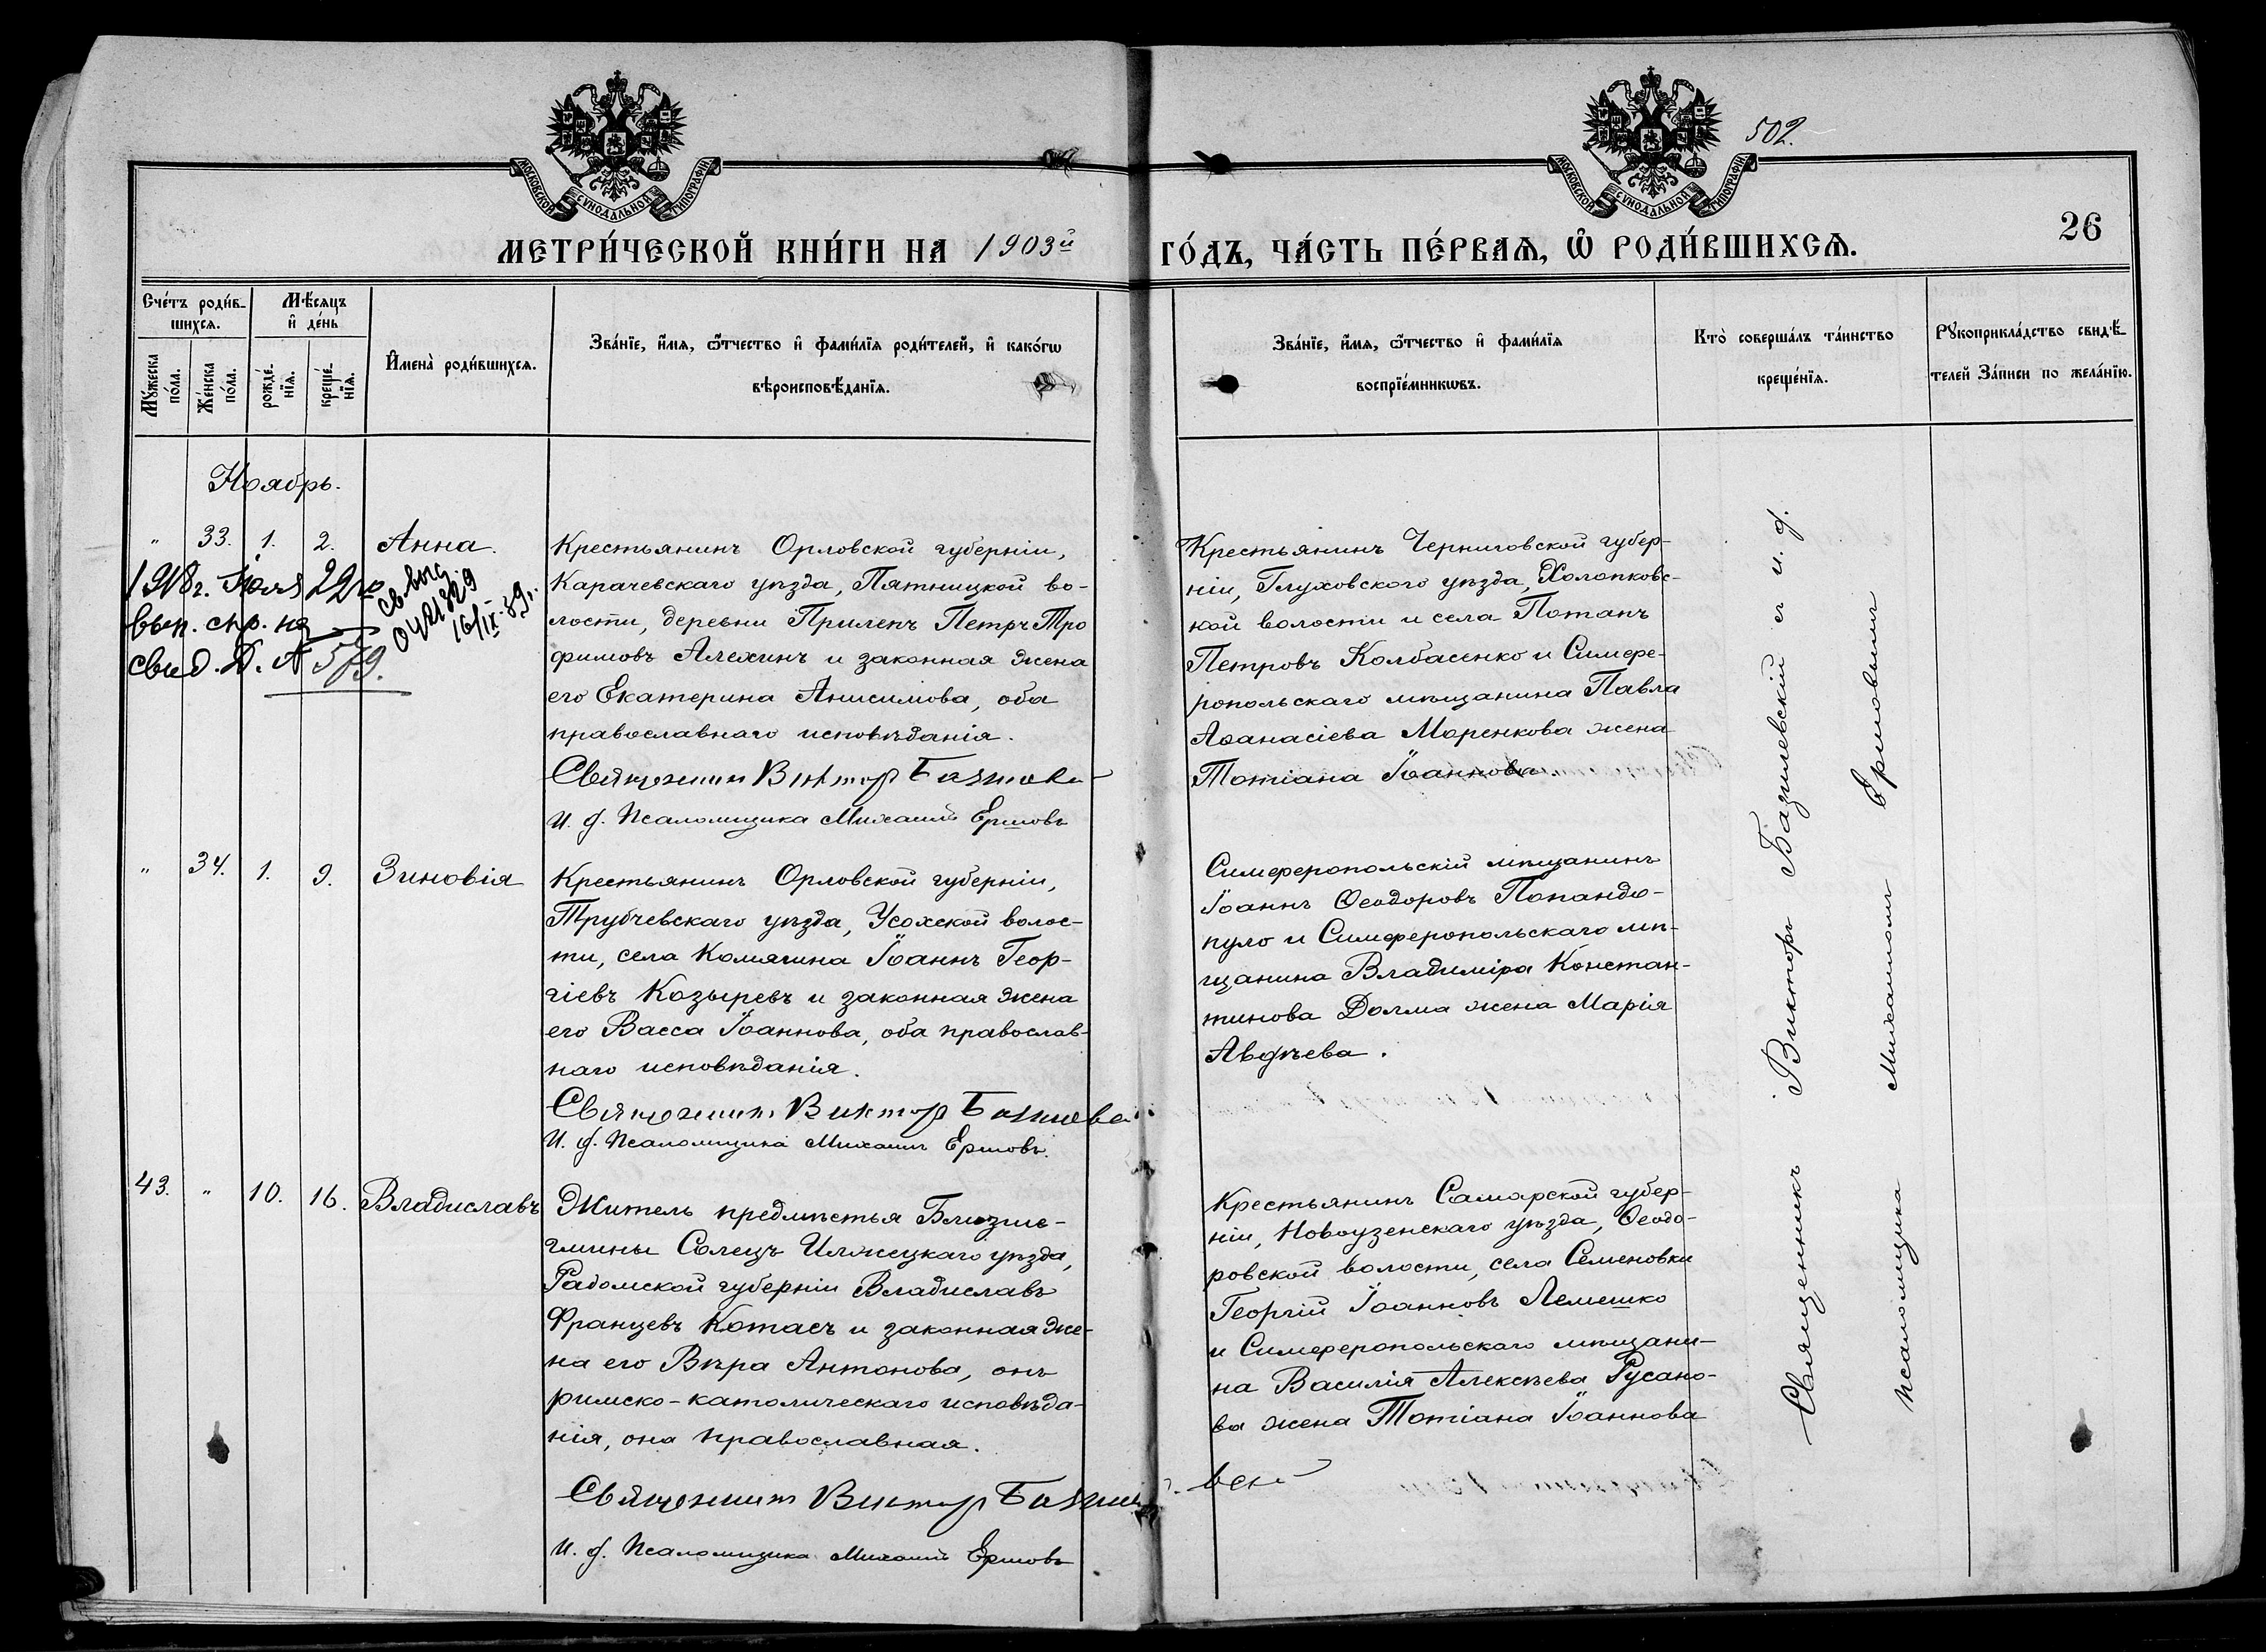 502.
МОСКОВСКОЙ СѴНОДАЛЬНОЙ ТИПОГРАФІИ
МОСКОВСКОЙ СѴНОДАЛЬНОЙ ТИПОГРАФІИ
26
МЕТРИ́ЧЕСКОЙ КНИ́ГИ НА 1903й ГО́ДЪ, ЧА́СТЬ ПЕ́РВАѦ, Ѽ РОДИ́ВШИХСѦ.
Сче́тъ роди́в-
шихсѧ.
Мѣ́сѧцъ
и҆ де́нь
Мꙋ́жеска
по́ла.
Же́нска
по́ла.
рожде́-
нїѧ.
креще́-
нїѧ.
И҆мена̀ роди́вшихсѧ.
Зва́нїе, и҆́мѧ, ѻ҆́тчество и҆ фами́лїѧ роди́телей, и҆ како́гѡ
вѣроисповѣ́данїѧ.
Зва́нїе, и҆́мѧ, ѻ҆́тчество и҆ фами́лїѧ
воспрїе́мникѡвъ.
Кто̀ соверша́лъ та́инство
креще́нїѧ.
Рꙋкоприкла́дство свидѣ́-
телей За́писи по жела́нїю.
Ноябрь.
" 33. 1. 2. Анна.
1918г. Июля 22го
вып. спр. на
свид. Д. № 579.
св. выд.
ОЧ 21329
16/IX-89г.
Крестьянинъ Орловской губерніи,
Карачевскаго уѣзда, Пятницкой во-
лости, деревни Прилепъ Петръ Тро
фимовъ Алехинъ и законная жена
его Екатерина Анисимова, оба
православнаго исповѣданія.
Священник Виктор Базилев
И. д. Псаломщика Михаилъ Ершовъ
Крестьянинъ Черниговской губер-
ніи, Глуховского уѣзда, Холопковс-
кой волости и села Потапъ
Петровъ Колбасенко и Симфе-
ропольскаго мѣщанина Павла
Аѳанасіева Моренкова жена
Татіана Іоаннова.
" 34. 1. 9. Зиновія
Крестьянинъ Орловской губерніи,
Трубчевскаго уѣзда, Усохской волос-
ти, села Комягина Іоаннъ Геор-
гіевъ Козыревъ и законная жена
его Васса Іоаннова, оба православ-
наго исповѣданія.
Священникъ Виктор Базилевс
И. д. Псаломщика Михаилъ Ершовъ.
Симферопольскій мѣщанинъ
Іоаннъ Ѳеодоровъ Попандо-
пуло и Симферопольскаго мѣ-
щанина Владиміра Констан-
тинова Долма жена Марія
Авдѣева.
43. " 10. 16. Владиславъ
Житель предмѣстья Близне-
гмины Солецъ Илжецкаго уѣзда,
Радомской губерніи Владиславъ
Францевъ Котасъ и законная же-
на его Вѣра Антонова, онъ
римско-католическаго исповѣда-
нія, она православная.
Священникъ Виктор Базилевск
И. д. Псаломщика Михаилъ Ершовъ
Крестьянинъ Самарской губер-
ніи, Новоузенскаго уѣзда, Ѳеодо-
ровской волости, села Семеновки
Георгій Іоанновъ Лемешко
и Симферопольскаго мѣщани-
на Василія Алексѣева Русано-
ва жена Татіана Іоаннова
Священникъ Викторъ Базилевскій съ и. д.
псаломщика Михаиломъ Ершовымъ